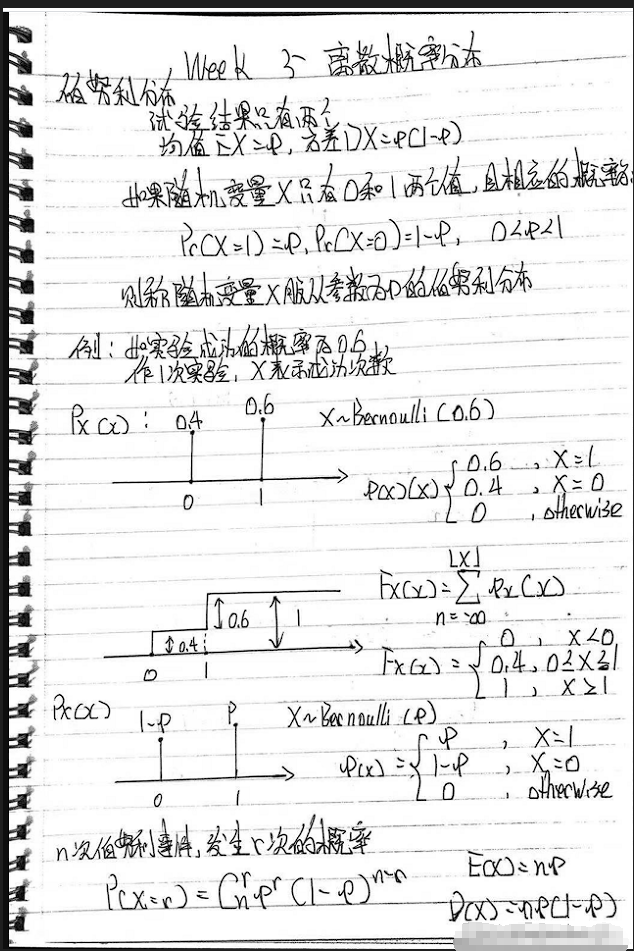 Week 5 离散概率分布
伯努利分布
试验结果只有两个
均值EX=p, 方差DX=p(1-p)
如果随机变量X只有0和1两个值,且相应的概率为
Pr(X=1)=p, Pr(X=0)=1-p, 0<p<1
则称随机变量X服从参数为p的伯努利分布
例:如实验成功的概率为0.6
作1次实验,X表示成功次数
Px(x): 0.4 0.6 X~Bernoulli(0.6)
0 1
p(x)(x) { 0.6 , X=1
0.4 , X=0
0 , otherwise
Fx(x)=∑ Px(x)
⌊X⌋
n=-∞
0.4 0.6 1
0 1
Fx(x)= { 0 , X<0
0.4, 0≤X≤1
1 , X≥1
Px(x) 1-p p X~Bernoulli(p)
0 1
p(x)= { p , X=1
1-p , X=0
0 , otherwise
n次伯努利事件,发生r次的概率
P(X=r)=(n^r p^r (1-p)^{n-r}
E(x)=np
D(x)=np(1-p)